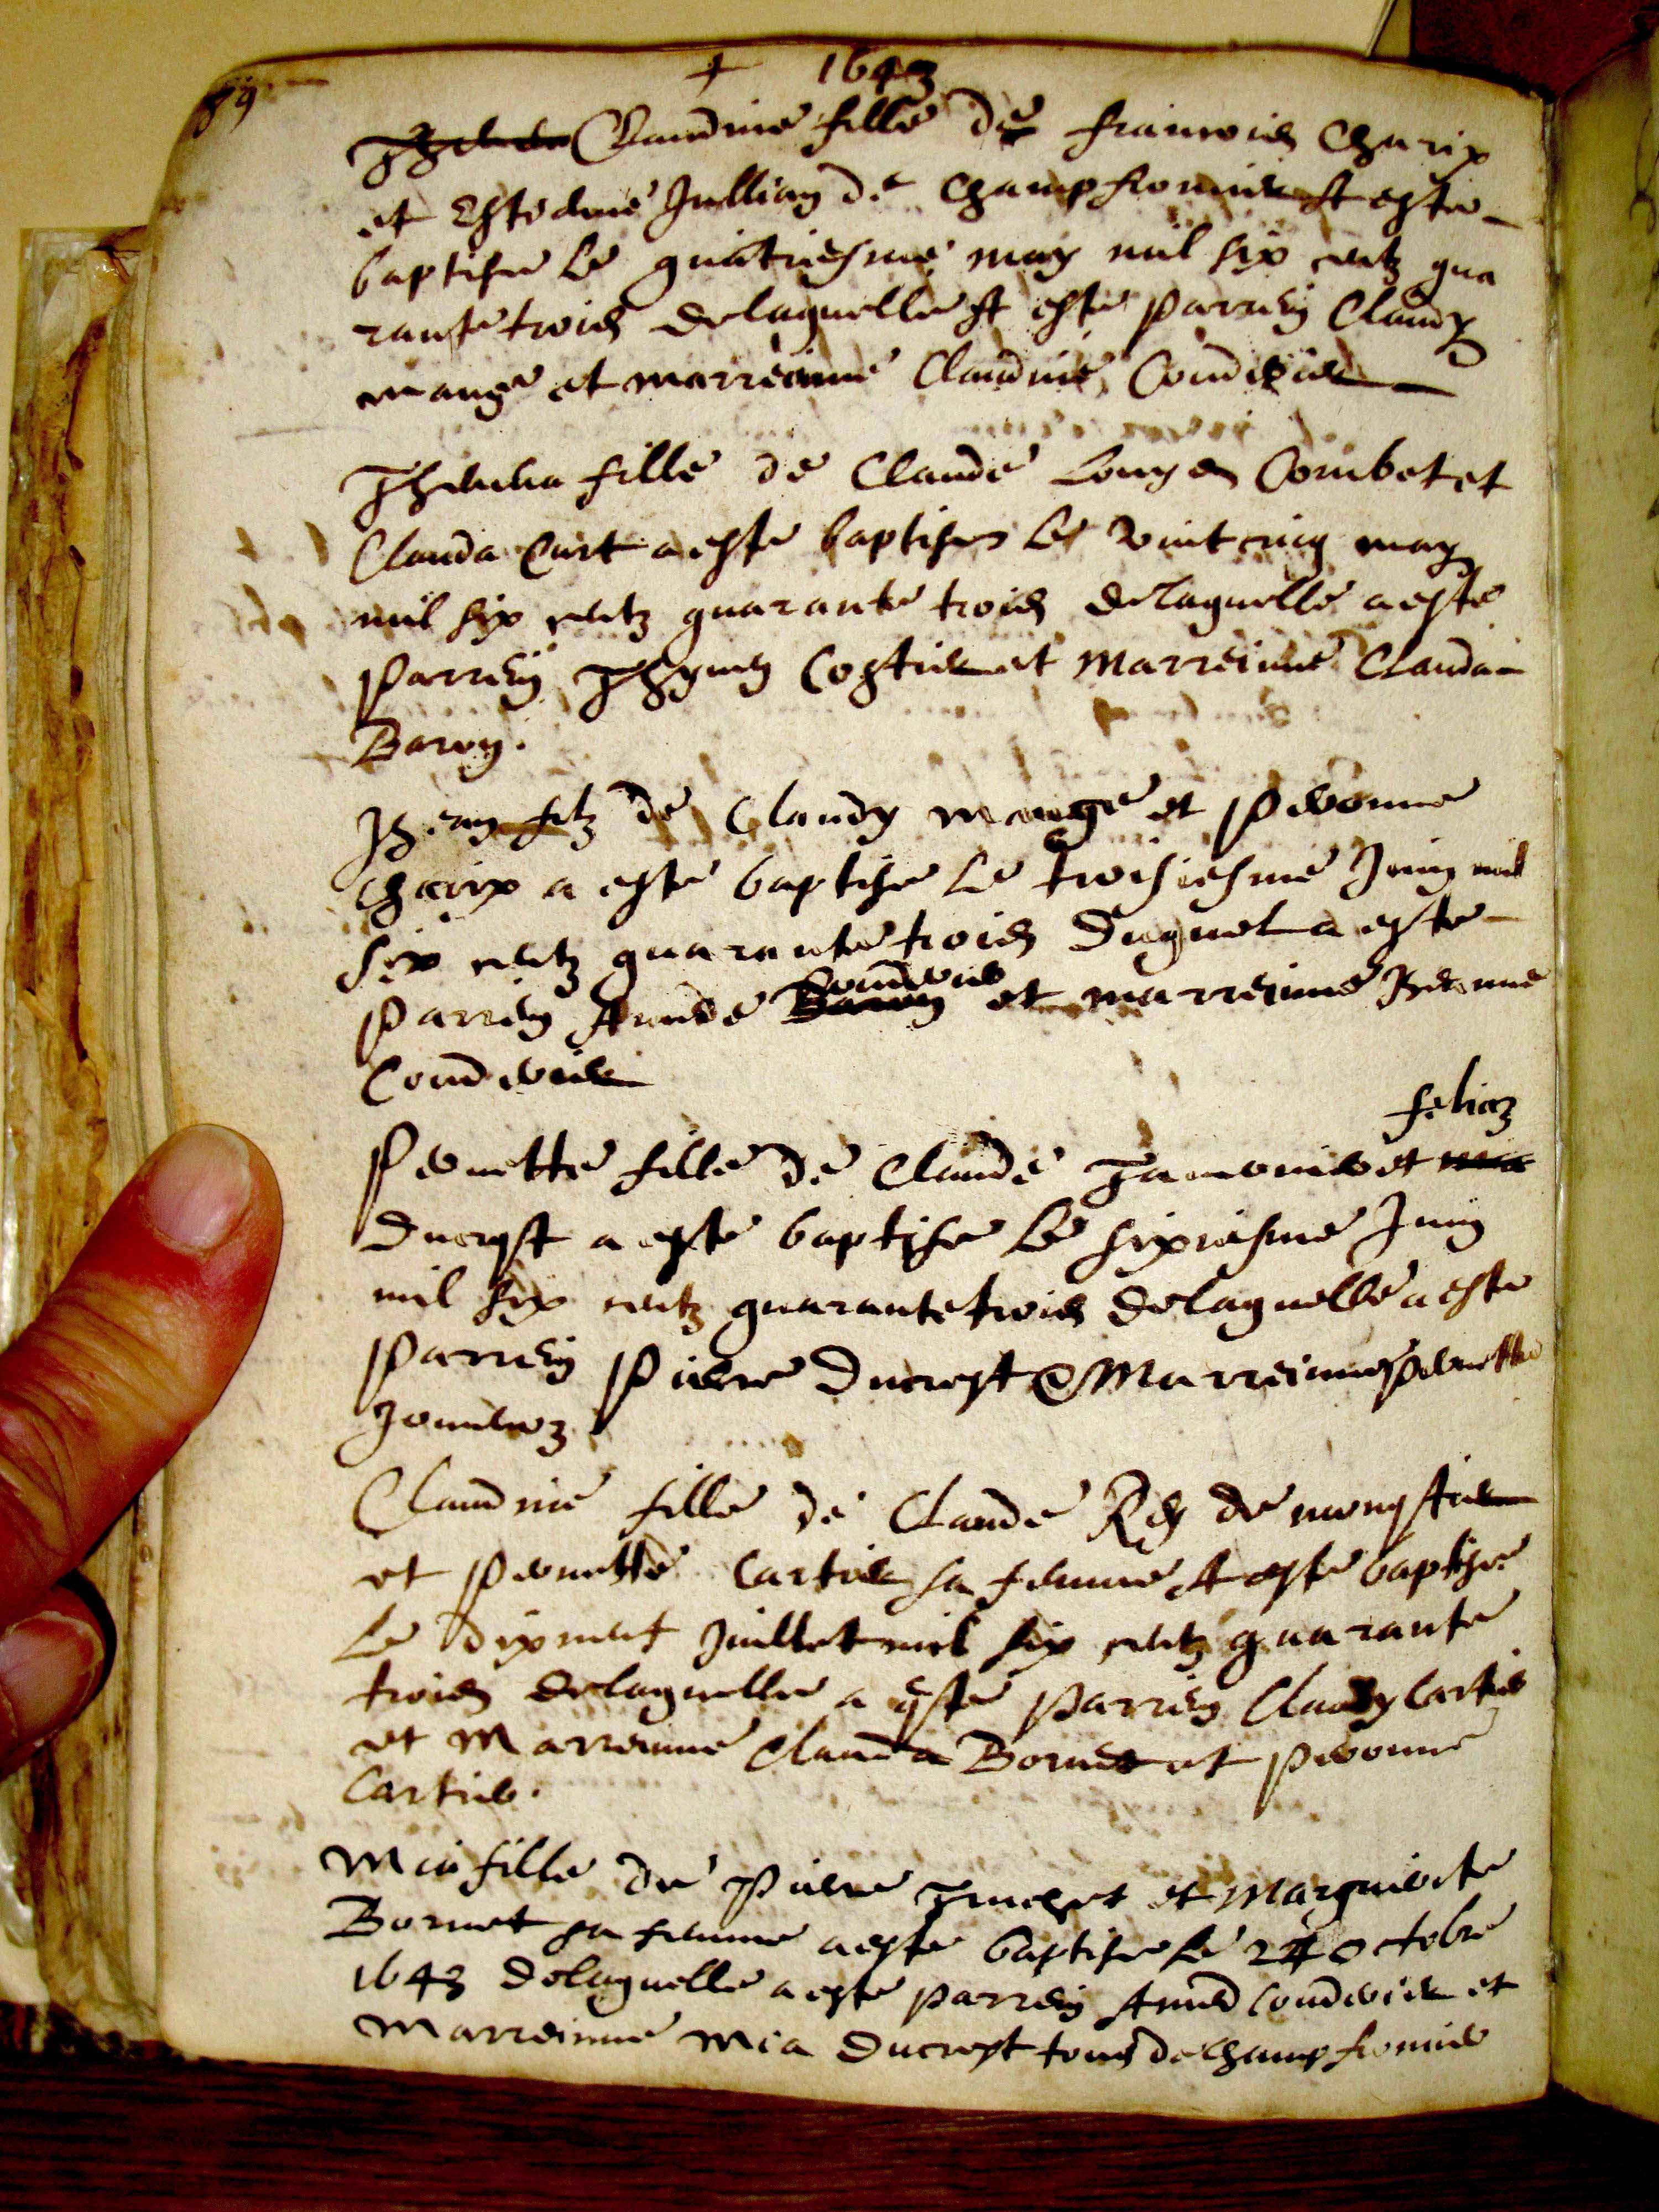 89
+ 1643
Claudine fille de francois Charix
et Estiene Jullian de Champfromier A este
baptisee le quatriesme may mil six centz qua
rante trois delaquelle A este parrein Claudy
mange et marreinne Claudine Coudurier
Thevena fille de Claude Louys Combet et
Clauda Curt a este baptisee le vint cinq may
mil six centz quarante trois delaquelle a este
parrein Thyven Costier et Marreinne Clauda
Baron.
Jean filz de Claudy mange et pernonne
Charix a este baptise le troisiesme Juin mil
six centz quarante trois duquel a este
parrein Amede Coudurier et marreinne Jeanne
Coudurier
feliez
Pernette fille de Claude Tavernier et
Ducrest a este baptisee le sixiesme Juin
mil six centz quarante trois delaquelle a este
parrein Pierre Ducrest & Marreinne pernette
Claudine fille de Claude Rey de monestier
et pernette Cartier sa femme A este baptisee
le dixneuf Juillet mil six centz quarante
trois delaquelle a este parrein Claudy Cartier
et Marreinne Clauda Bornet et pernonne
Cartier.
Mia fille de Pierre Truchet et Marguierite
Bornet sa femme a este baptisee le 24 Octobre
1643 delaquelle a este parrein Amed Coudurier et
Marreinne Mia Ducrest tous de champfromier